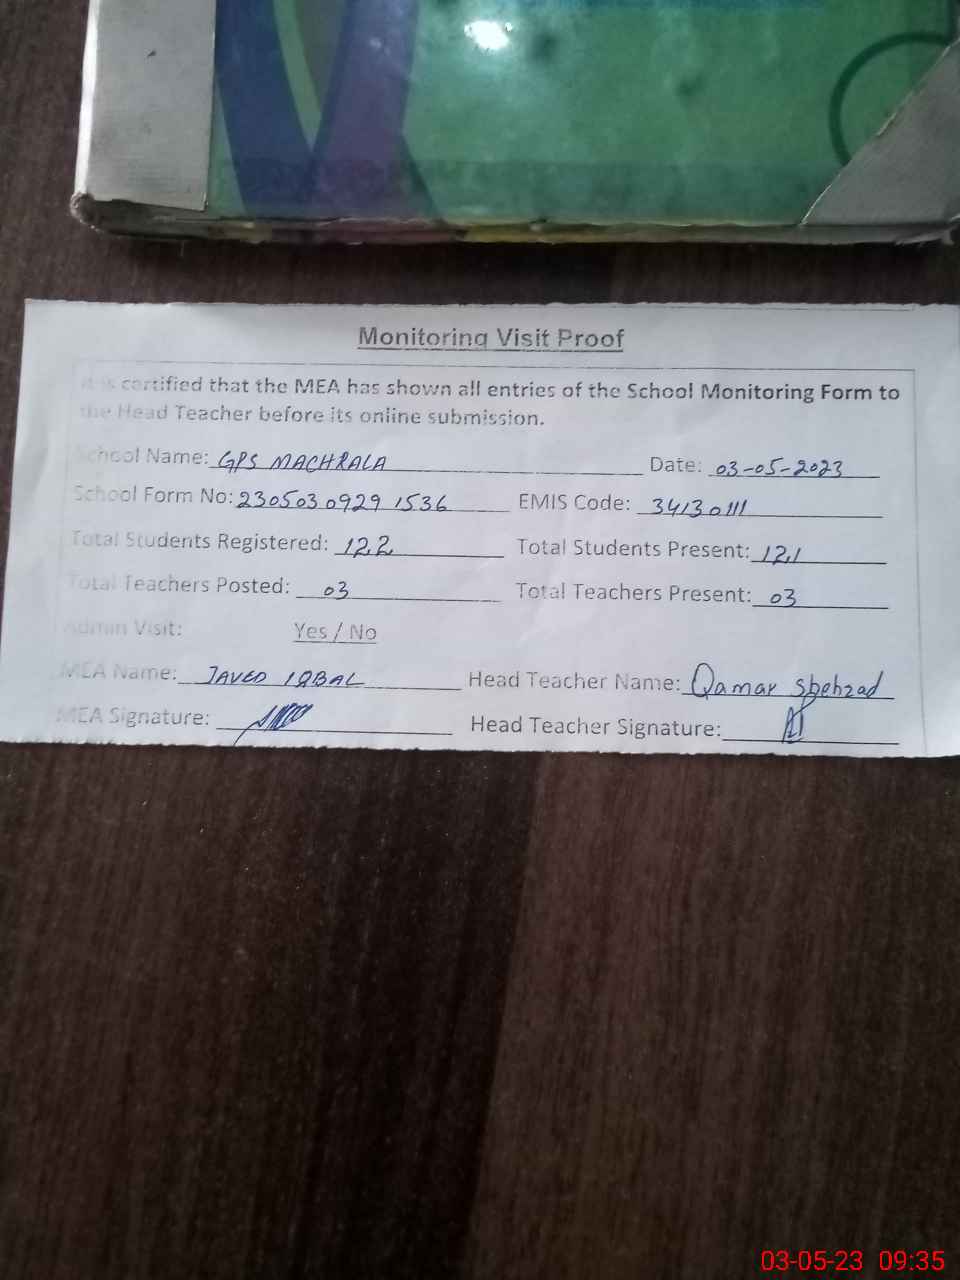 Monitoring Visit Proof
It is certified that the MEA has shown all entries of the School Monitoring Form to
the Head Teacher before its online submission.
School Name: GPS MACHRALA Date: 03-05-2023
School Form No: 2305030929 1536 EMIS Code: 34130111
Total Students Registered: 122 Total Students Present: 121
Total Teachers Posted: 03 Total Teachers Present: 03
Admin Visit: Yes / No
MEA Name: JAVED IQBAL Head Teacher Name: Qamar Shehzad
MEA Signature: Head Teacher Signature:
03-05-23 09:35